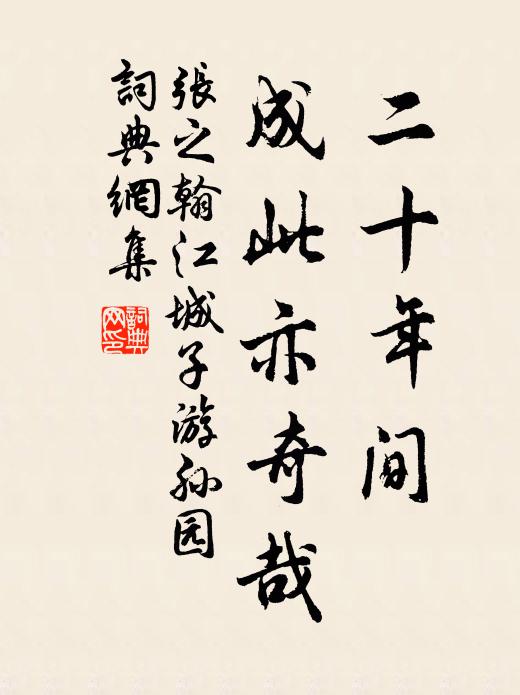 二十年间
成此亦奇哉
張之翰江城子游孙园
詞典網集
詞典网印